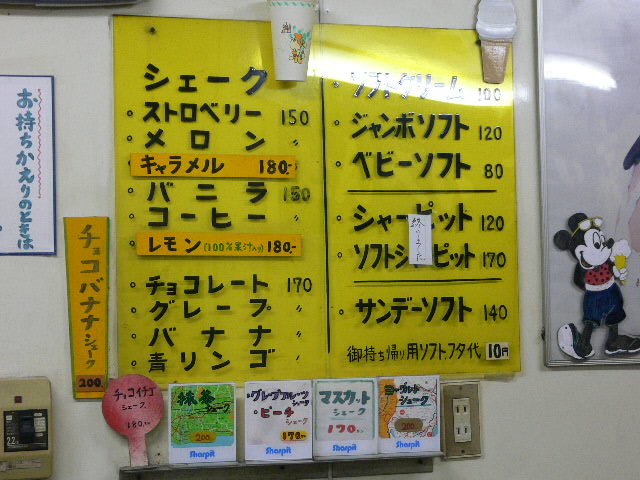 お持ちかえりのときは
チョコバナナシェーク
200
シェーク
ストロベリー 150
メロン 〃
キャラメル 180-
バニラ 150
コーヒー 〃
レモン(100%果汁入り) 180-
チョコレート 170
グレープ 〃
バナナ 〃
青リンゴ 〃
ソフトクリーム 100
ジャンボソフト 120
ベビーソフト 80
シャーピット 120
終りました
ソフトシャーピット 170
サンデーソフト 140
御持ち帰り用ソフトフタ代 10円
チョコイチゴ
シェーク
180
抹茶
シェーク
200
Sharpit
グレープフルーツ
シェーク
ピーチ
シェーク
170
Sharpit
マスカット
シェーク
170
Sharpit
ヨーグルト
シェーク
200
Sharpit